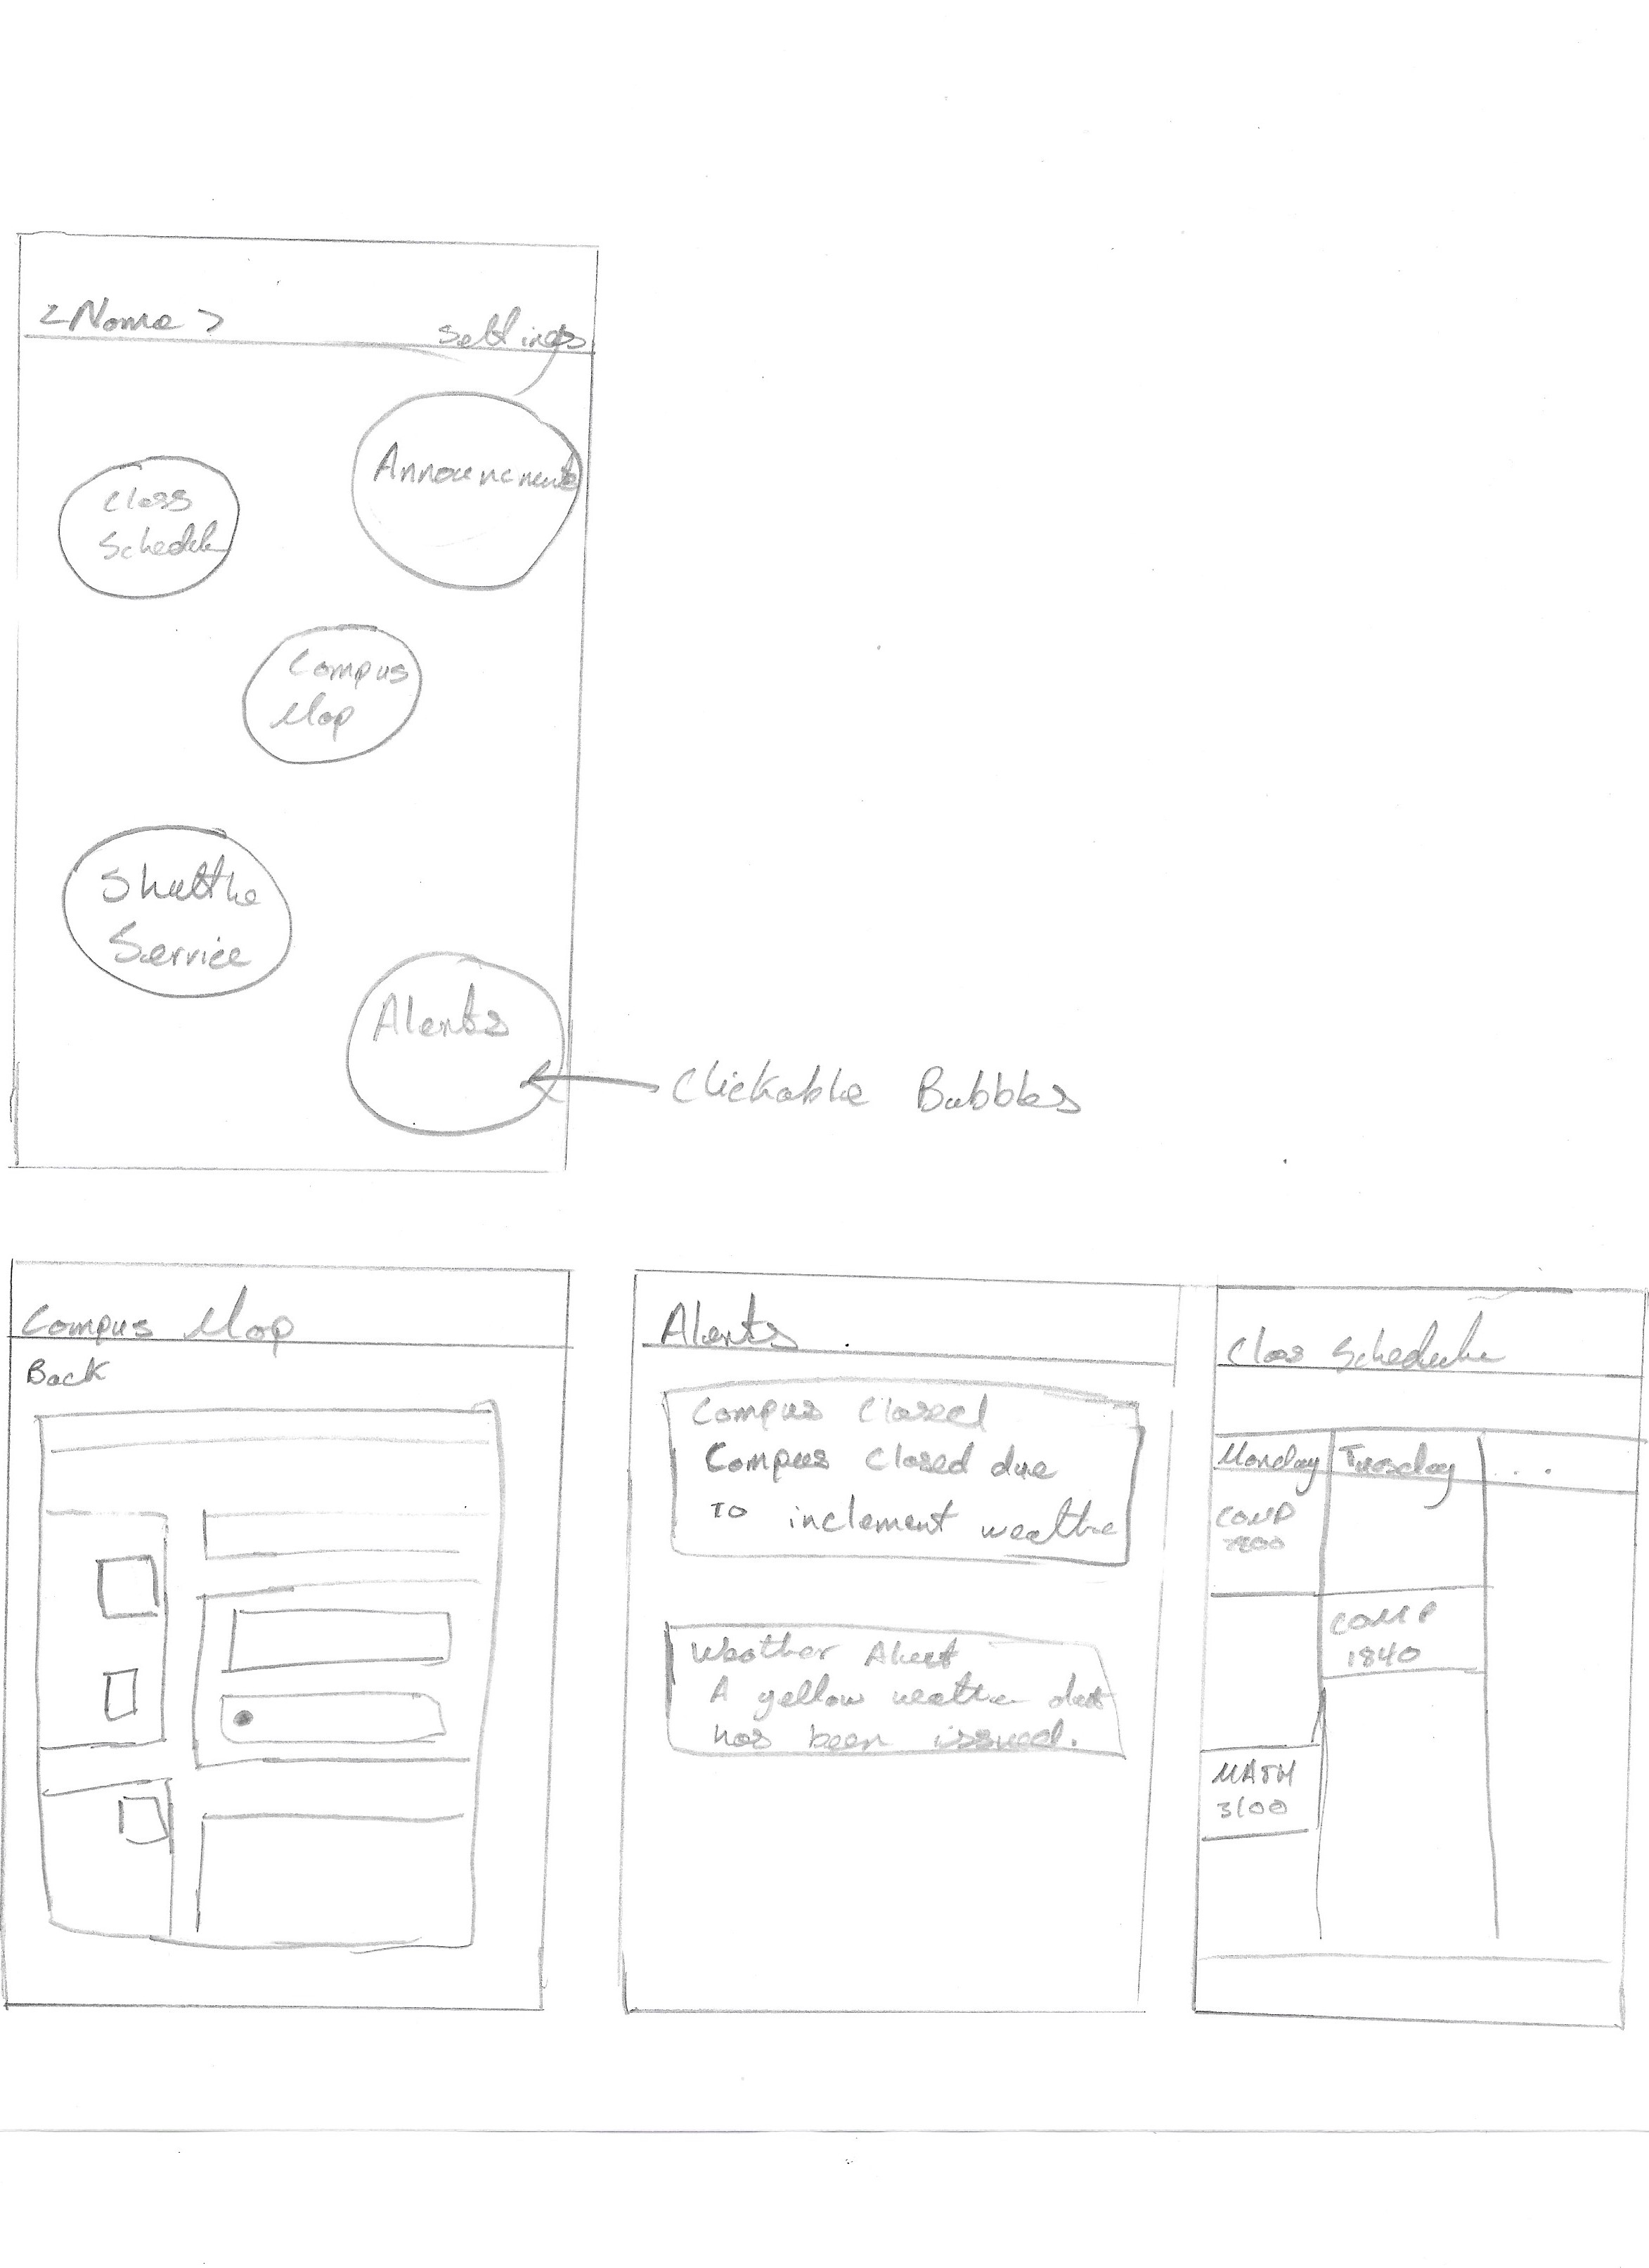 <Name>
Settings
Announcements
Class
Schedule
Campus
Map
Shuttle
Service
Alerts
Clickable Bubbles
Campus Map
Back
Alerts
Campus Closed
Campus Closed due
To inclement weather
Weather Alert
A yellow weather alert
has been issued.
Class Schedule
Monday Tuesday ...
COMP
COMP
1840
MATH
3100